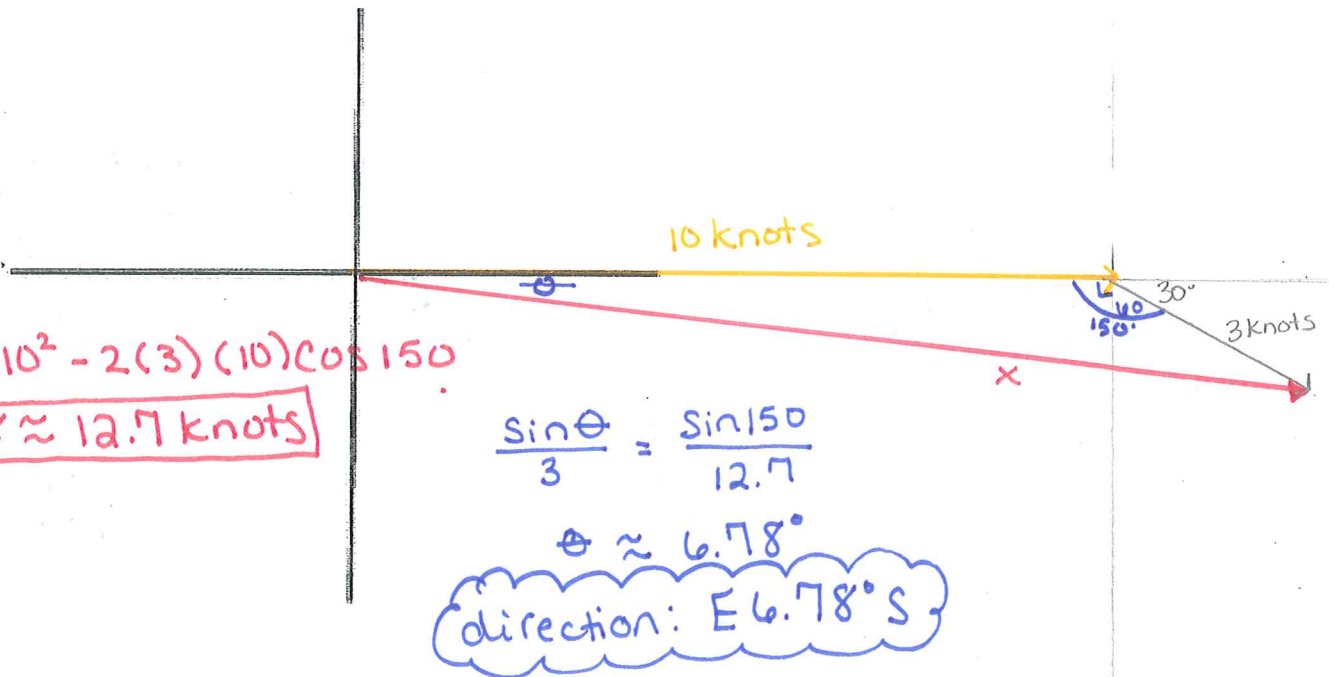 10 knots
θ
30°
60
150°
3 knots
x
10² - 2(3)(10)cos 150
x ≈ 12.7 knots
sinθ/3 = sin150/12.7
θ ≈ 6.78°
direction: E 6.78° S